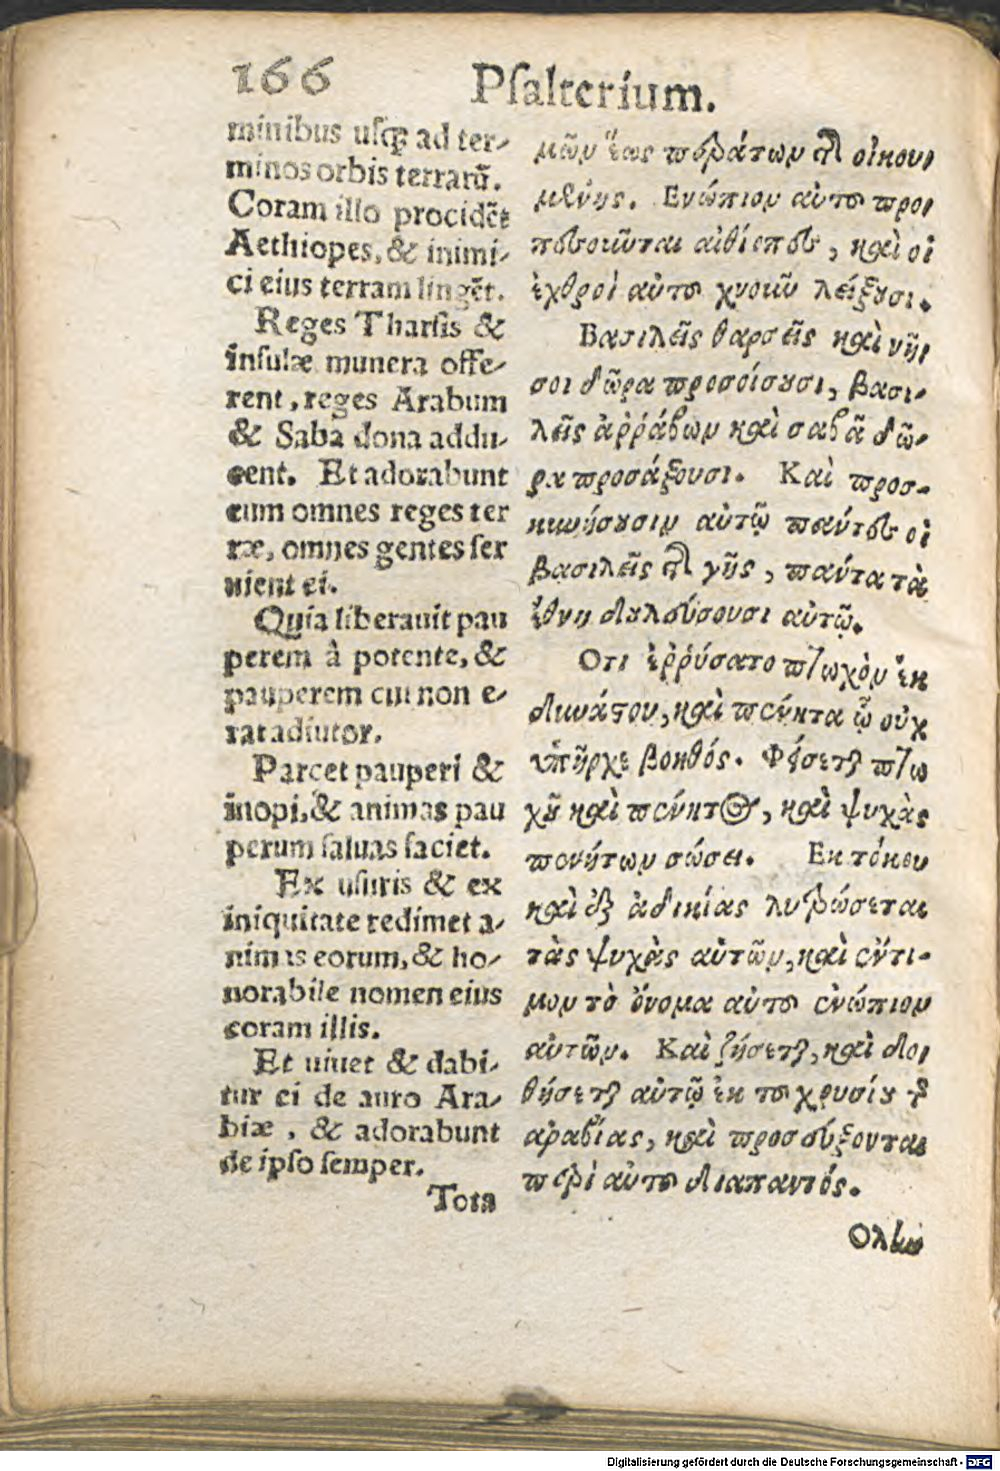 166 Psalterium.
minibus usq; ad ter-
minos orbis terrarũ.
Coram illo procidẽt
Aethiopes, & inimi-
ci eius terram lingẽt.
Reges Tharsis &
insulæ munera offe-
rent, reges Arabum
& Saba dona addu-
cent. Et adorabunt
eum omnes reges ter
ræ, omnes gentes ser
uient ei.
Quia liberauit pau
perem à potente, &
pauperem cui non e-
rat adiutor.
Parcet pauperi &
inopi, & animas pau
perum saluas faciet.
Ex usuris & ex
iniquitate redimet a-
nimas eorum, & ho-
norabile nomen eius
coram illis.
Et uiuet & dabi-
tur ei de auro Ara-
biæ, & adorabunt
de ipso semper.
Tota
μῶν ἕως περάτων τῆς οἰκου-
μένης. Ενώπιον αὐτοῦ προ-
πεσοῦνται αἰθίοπες, καὶ οἱ
ἐχθροὶ αὐτοῦ χνοιοῦν λείξουσι.
Βασιλεῖς θαρσεῖς καὶ νῆ-
σοι δῶρα προσοίσουσι, βασι-
λεῖς ἀῤῥάβων καὶ σαβᾶ δῶ-
ρα προσάξουσι. Καὶ προσ-
κυνήσουσιν αὐτῷ πάντες οἱ
βασιλεῖς τῆς γῆς, πάντα τὰ
ἔθνη δουλεύσουσι αὐτῷ.
Οτι ἐῤῥύσατο πτωχὸν ἐκ
δυνάστου, καὶ πένητα ᾧ οὐχ
ὑπῆρχε βοηθός. Φείσεται πτω
χοῦ καὶ πένητος, καὶ ψυχὰς
πενήτων σώσει. Εκ τόκου
καὶ ἐξ ἀδικίας λυτρώσεται
τὰς ψυχὰς αὐτῶν, καὶ ἔντι-
μον τὸ ὄνομα αὐτοῦ ἐνώπιον
αὐτῶν. Καὶ ζήσεται, καὶ δο-
θήσεται αὐτῷ ἐκ τοῦ χρυσίου τῆς
ἀραβίας, καὶ προσεύξονται
περὶ αὐτοῦ διαπαντός.
Ολην
Digitalisierung gefördert durch die Deutsche Forschungsgemeinschaft - DFG